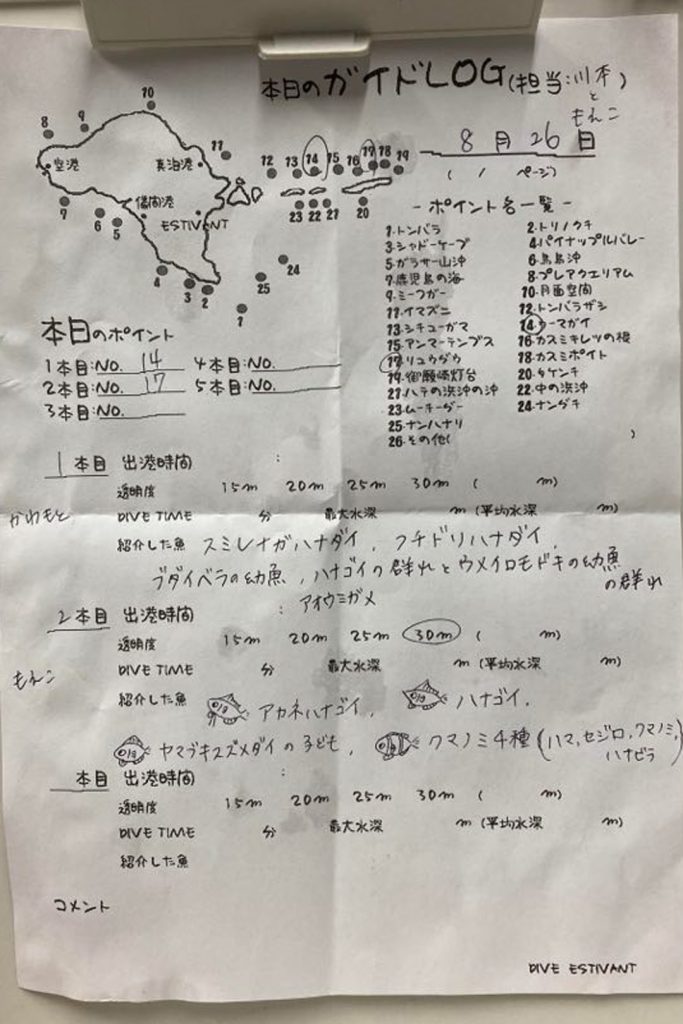 本日のガイドLOG(担当:川本
と
もえこ)
8月26日
( / ページ)
10
8
9
空港
真泊港
11
12 13 14 15 16 17 18 19
7
6
5
儀間港
ESTIVANT
23 22 21
20
4
3
2
1
25
24
-ポイント名一覧-
1.トンバラ 2.トリノクチ
3.シャドーケーブ 4.パイナップルバレー
5.ガラサー山沖 6.鳥島沖
7.鹿児島の海 8.プレアクエリアム
9.ミーフガー 10.月面空間
11.イマズニ 12.トンバラザシ
13.シチューガマ 14.ウーマガイ
15.アンマーテンブス 16.カスミキレツの根
17.リュウダウ 18.カスミポイト
19.御願崎灯台 20.タケンチ
21.ハテの浜沖の沖 22.中の浜沖
23.ムーチーダー 24.ナンダキ
25.ナンハナリ
26.その他( )
本日のポイント
1本目:NO. 14 4本目:NO.
2本目:NO. 17 5本目:NO.
3本目:NO.
1本目 出港時間 :
透明度 15m 20m 25m 30m ( m)
かわもと
DIVE TIME 分 最大水深 m (平均水深 m)
紹介した魚 スミレナガハナダイ, フチドリハナダイ,
ブダイベラの幼魚, ハナゴイの群れとウメイロモドキの幼魚の群れ
アオウミガメ
2本目 出港時間 :
透明度 15m 20m 25m 30m ( m)
もえこ
DIVE TIME 分 最大水深 m (平均水深 m)
紹介した魚 アカネハナゴイ, ハナゴイ,
ヤマブキスズメダイの子ども, クマノミ4種(ハマ,セジロ,クマノミ,ハナビラ)
本目 出港時間 :
透明度 15m 20m 25m 30m ( m)
DIVE TIME 分 最大水深 m (平均水深 m)
紹介した魚
コメント
DIVE ESTIVANT